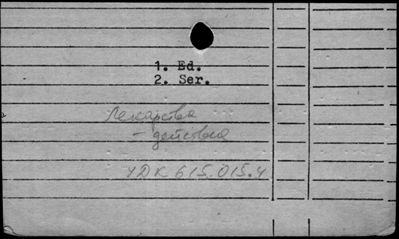 1. Ed.
2. Ser.
Лекарства
- действие
УДК 615.015.4